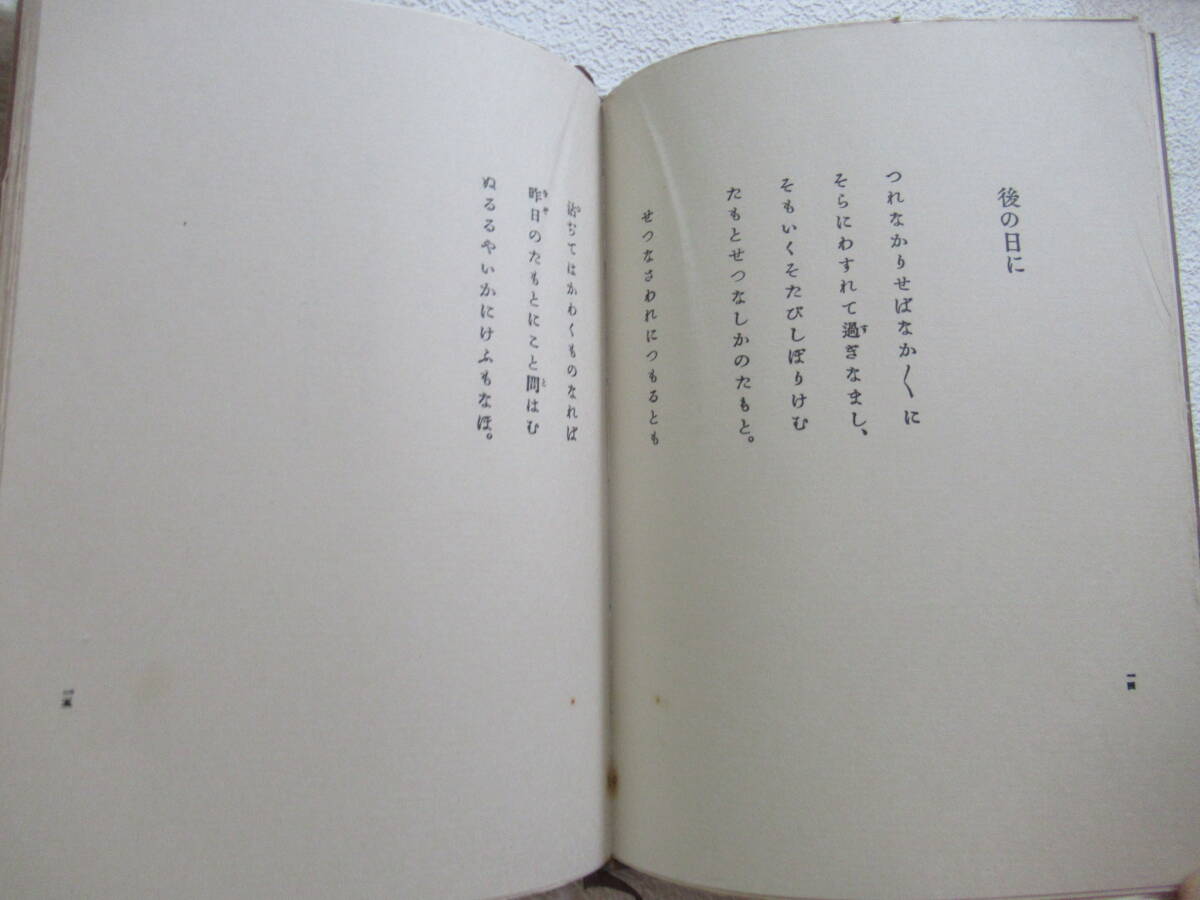 後の日に
つれなかりせばなか〳〵に
そらにわすれて過ぎなまし、
そもいくそたびしぼりけむ
たもとせつなしかのたもと。
せつなさわれにつもるとも
てはかわくものなれば
昨日のたもとにこと問はむ
ぬるるやいかにけふもなほ。
一四
一五